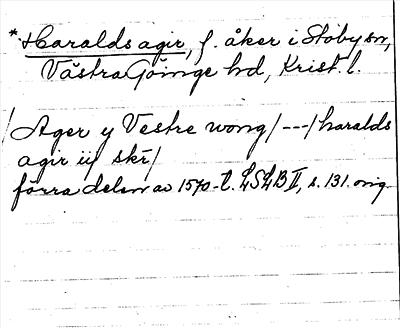 *Haralds agir, f. åker i Stoby sn,
Västra Göinge hd, Krist. l.
/Ager y Vestre wong/---/haralds
agir iij skr/
förra delen av 1570-t. LSLB II, s. 131. orig.